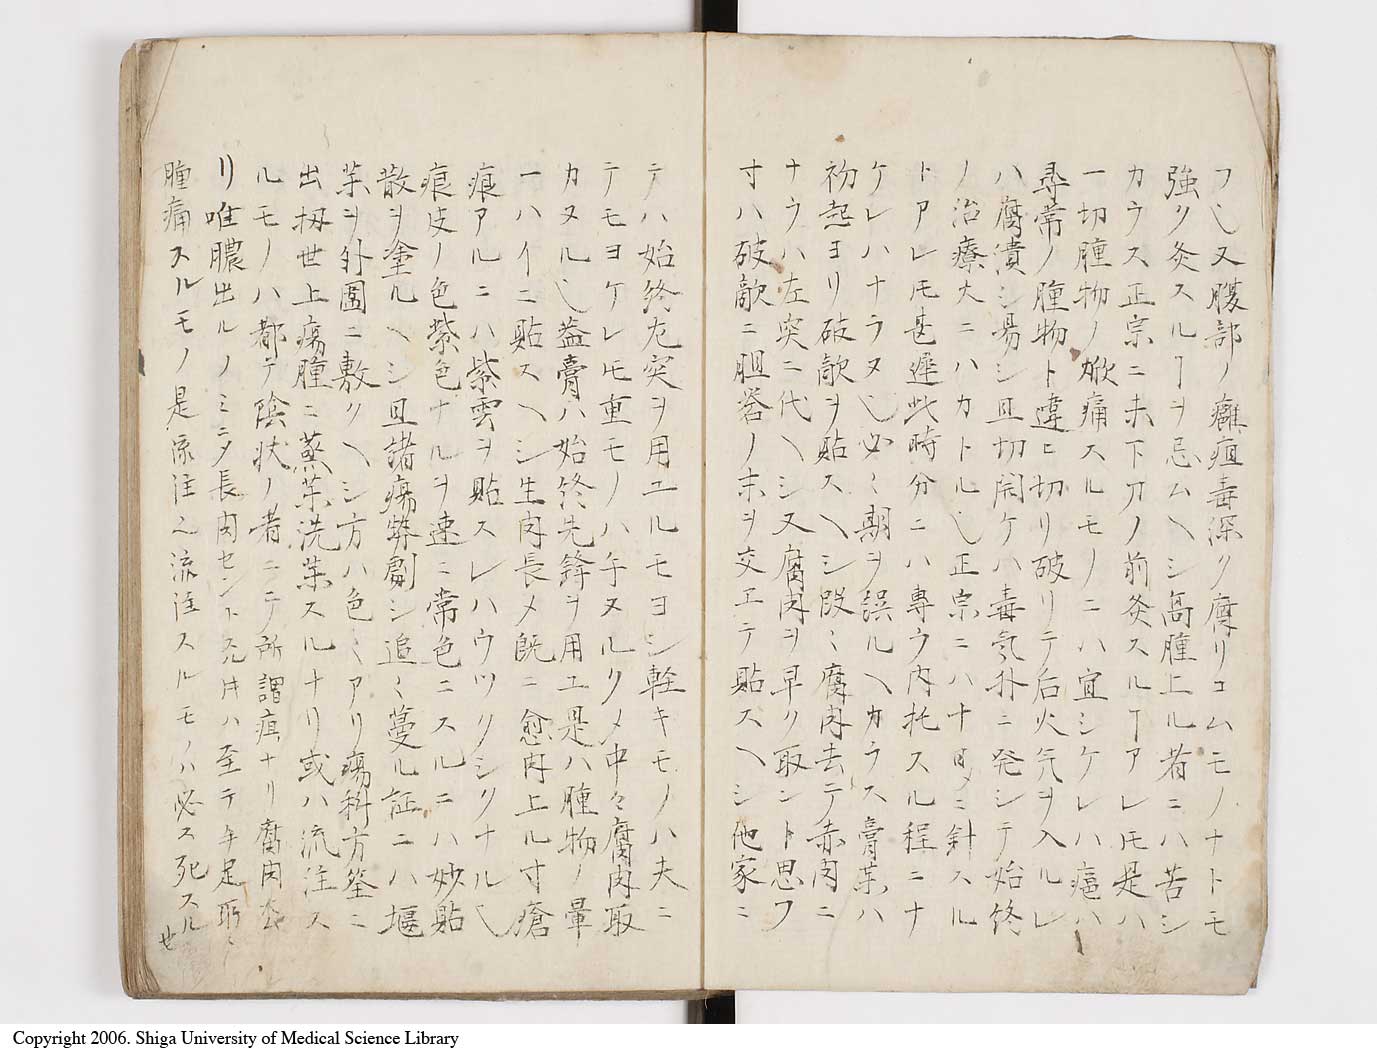 フ乀又腹部ノ癰疽毒深ク腐リコムモノナトモ
強ク灸スルヿヲ忌ム乀シ高腫上ル者ニハ苦シ
カラス正宗ニ未下刀ノ前灸スルヿアレ𪜈是ハ
一切腫物ノ焮痛スルモノニハ宜シケレハ癌ハ
尋常ノ腫物ト違ヒ切リ破リテ后火気ヲ入ルレ
ハ腐潰シ易シ且切開ケハ毒気外ニ発シテ始終
ノ治療大ニハカトル乀正宗ニハ十日メニ針スル
トアレ𪜈甚遅此時分ニハ専ラ内托スル程ニナ
ケレハナラヌ乀必〻期ヲ誤ル乀カラス膏薬ハ
初起ヨリ破敵ヲ貼ス乀シ段〻腐肉去テ赤肉ニ
ナラハ左突ニ代乀シ又腐肉ヲ早ク取ント思フ
寸ハ破敵ニ胆礬ノ末ヲ交エテ貼ス乀シ他家ニ
テハ始終左突ヲ用エルモヨシ軽キモノハ夫ニ
テモヨケレ𪜈重モノハ手ヌルクメ中々腐肉取
カヌル乀蓋膏ハ始終先鋒ヲ用ユ是ハ腫物ノ暈
一ハイニ貼ス乀シ生肉長メ既ニ愈肉上ル寸瘡
痕アルニハ紫雲ヲ貼スレハウツクシクナル乀
痕皮ノ色紫色ナルヲ速ニ常色ニスルニハ妙貼
散ヲ塗ル乀シ且諸瘍弊劇シ追〻蔓ル証ニハ堰
薬ヲ外圍ニ敷ク乀シ方ハ色〻アリ瘍科方筌ニ
出扨世上瘍腫ニ蒸薬洗薬スルナリ或ハ流注ス
ルモノハ都テ陰状ノ者ニテ所謂疽ナリ腐肉去
リ唯膿出ルノミニメ長肉セント充片ハ至テ手足所〻
腫痛スルモノ是流注之流注スルモノハ必ス死スル
せ